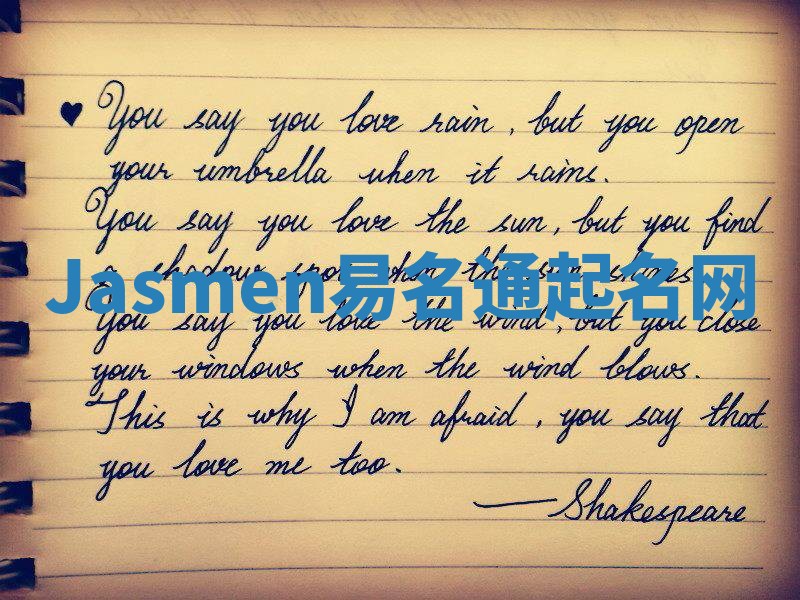 ♥ You say you love rain, but you open
your umbrella when it rains.
You say you love the sun, but you find
a shadow spot when the sun shines.
Jasmen易名通起名网
You say you love the wind, but you close
your windows when the wind blows.
This is why I am afraid, you say that
you love me too.
—Shakespeare